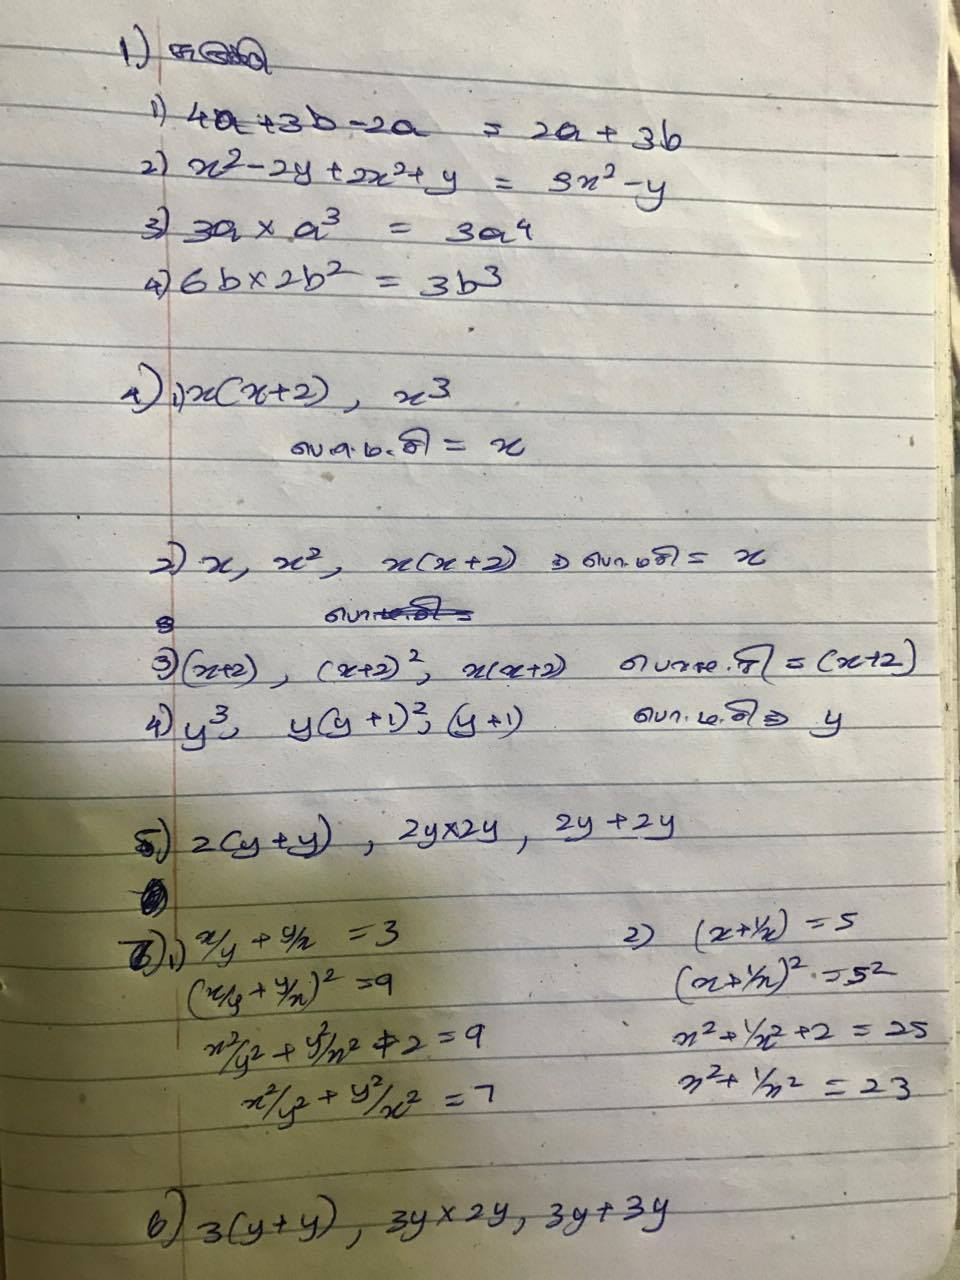 1)
1) 4a + 3b - 2a = 2a + 3b
2) x² - 2y + 2x² + y = 3x² - y
3) 3a × a³ = 3a⁴
4) 6b × 2b² = 3b³
4) 1) x(x+2), x³
= x
2) x, x², x(x+2) ⇒ பொ.ம.சி = x
3) (x+2), (x+2)², x(x+2) = (x+2)
4) y³, y(y+1)², (y+1) பொ.ம.சி ⇒ y
5) 2(y+y), 2y×2y, 2y+2y
1) x/y + y/x = 3
(x/y + y/x)² = 9
x²/y² + y²/x² + 2 = 9
x²/y² + y²/x² = 7
2) (x+1/x) = 5
(x+1/x)² = 5²
x² + 1/x² + 2 = 25
x² + 1/x² = 23
6) 3(y+y), 3y×2y, 3y+3y